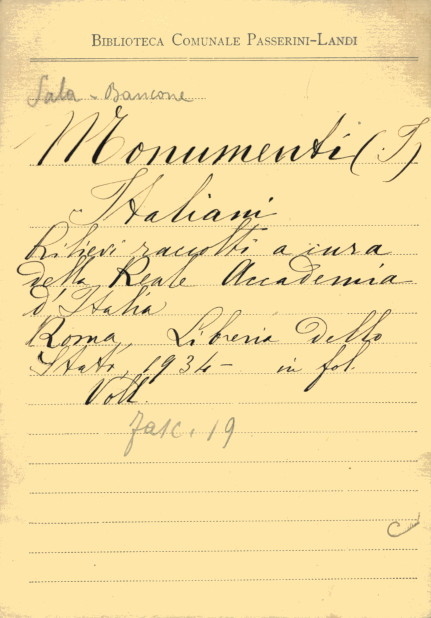 BIBLIOTECA COMUNALE PASSERINI-LANDI
Sala - Bancone
Monumenti (I)
Italiani
Rilievi raccolti a cura
della Reale Accademia
d'Italia
Roma, Libreria dello
Stato, 1934 - in fol.
Voll.
fasc. 19